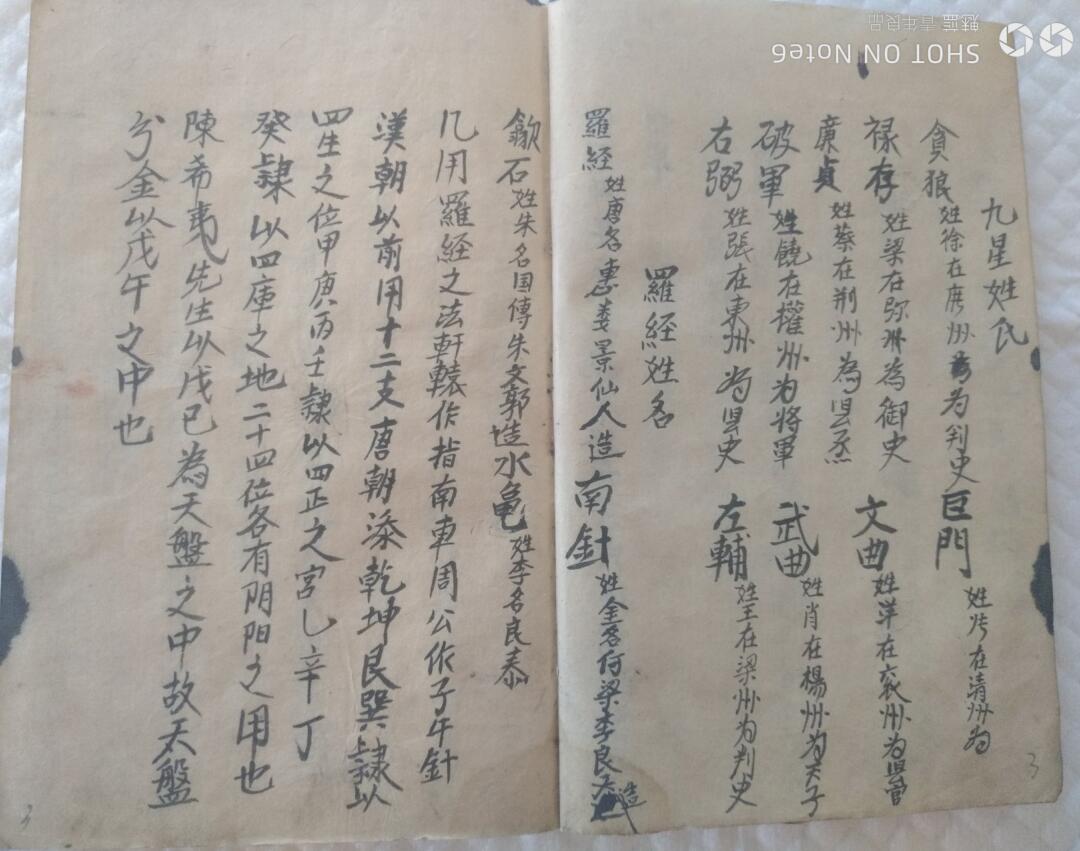 九星姓氏
貪狼姓徐在庚州为判史巨門姓在清州为
禄存姓梁在弥州為御史 文曲姓在衮州为县官
廉貞姓蔡在荆州為县丞
破軍姓饒在權州为將軍 武曲姓肖在楊州为天子
右弼姓張在東州为县史 左輔姓王在梁州为判史
羅經姓名
羅經姓唐名惠娄景仙人造南針姓金名何梁李良造
歙石姓朱名国傳朱文郭造水亀姓李名良泰
凡用羅經之法軒轅作指南車周公作子午針
漢朝以前用十二支唐朝添乾坤艮巽隸以
四生之位甲庚丙壬隸以四正之宮乚辛丁
癸隸以四庫之地二十四位各有阴阳之用也
陳希夷先生以戊已為天盤之中故天盤
分金以戊午之中也
3
3
SHOT ON Note6
魅蓝 青年良品